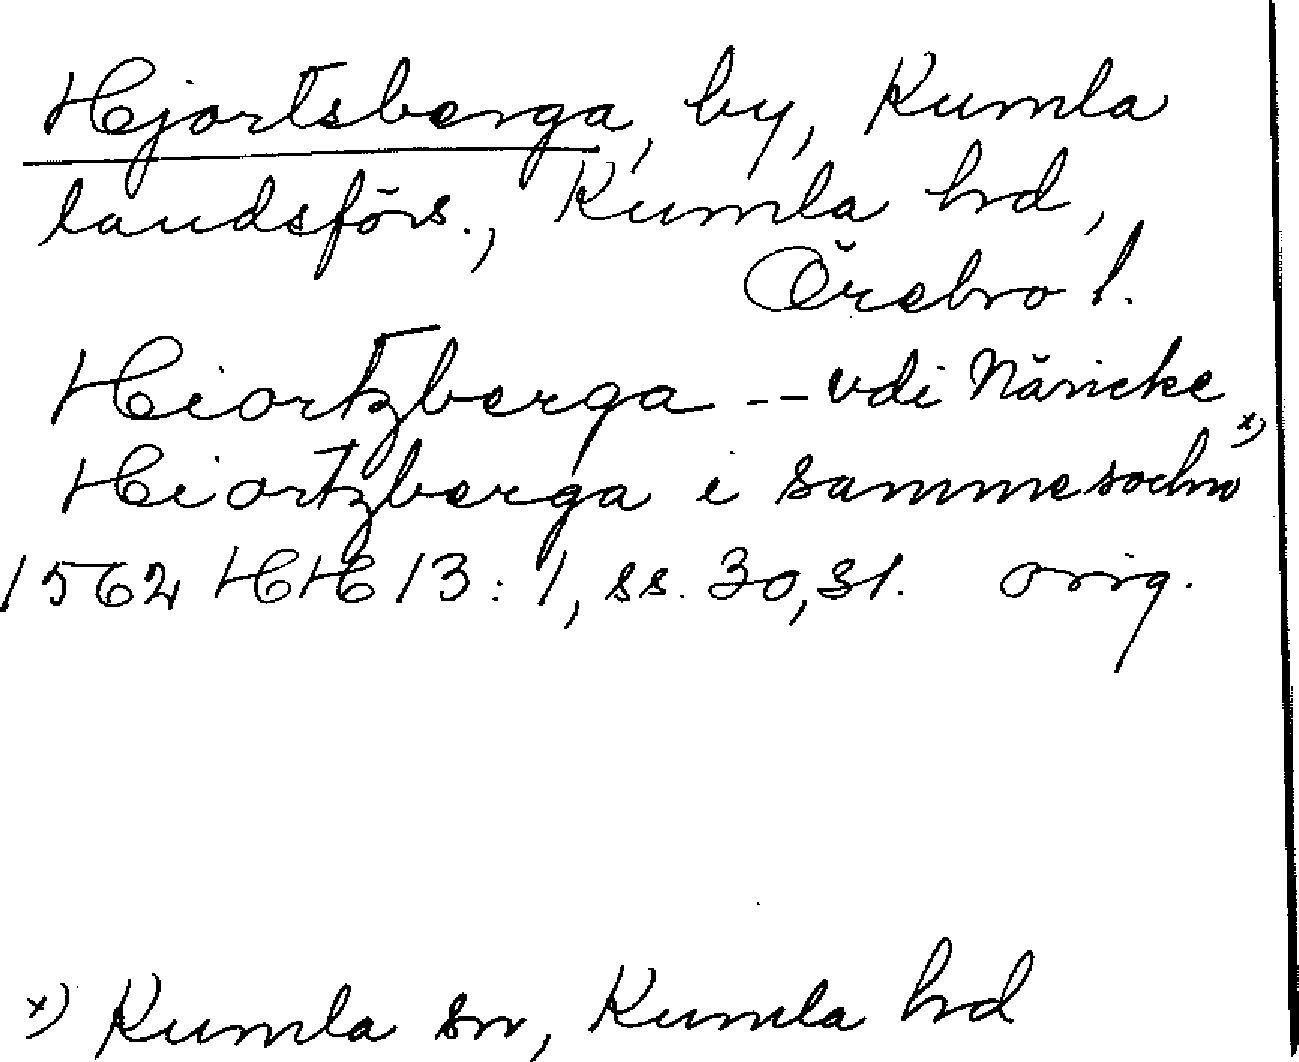 Hjortsberga, by, Kumla
landsförs., Kumla hd,
Örebro l.
Hiortzberga -- vdi Näricke
Hiortzberga i samme sochn x)
1562 HH 13:1, ss. 30, 31. orig.
x) Kumla sn, Kumla hd